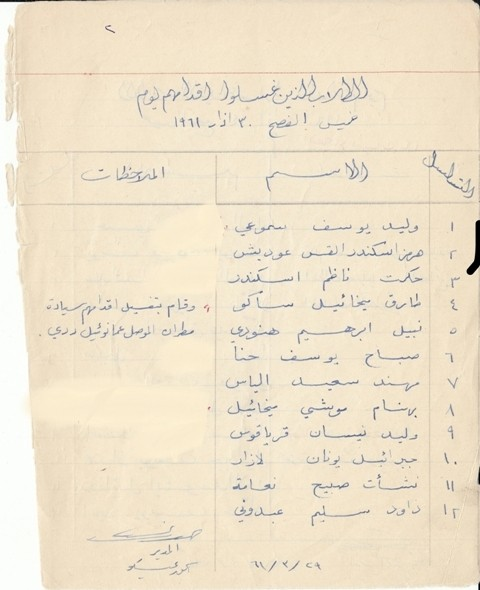 ٢
الطلاب الذين غسلوا اقدامهم يوم
خميس الفصح ٣٠ اذار ١٩٦١
التسلسل الاسم الملاحظات
١ وليد يوسف شموعي
٢ هرمز اسكندر القس عوديش
٣ حكمت ناظم اسكندر
٤ طارق ميخائيل ساكو وقام بتغسيل اقدامهم سيادة
٥ نبيل ابرهيم هندودي مطران الموصل عمانوئيل ددي.
٦ صباح يوسف حنا
٧ مهند سعيد الياس
٨ بهنام موشي ميخائيل
٩ وليد نيسان قرياقوس
١٠ جبرائيل يونان لازار
١١ نشأت صبيح نعامة
١٢ داود سليم عبدوني
المدير
٢٩/٣/٦١